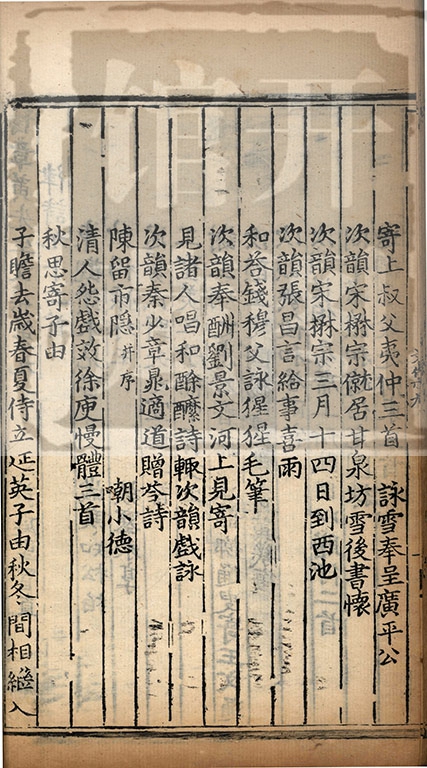 寄上叔父夷仲三首　詠雪奉呈廣平公
次韻宋楙宗僦居甘泉坊雪後書懷
次韻宋楙宗三月十四日到西池
次韻張昌言給事喜雨
和荅錢穆父詠猩猩毛筆
次韻奉酬劉景文河上見寄
見諸人唱和酴醾詩輒次韻戲詠
次韻秦少章晁適道贈荅詩
陳留市隱并序　嘲小德
清人怨戲效徐庾慢體三首
秋思寄子由
子瞻去歲春夏侍立延英子由秋冬間相繼入